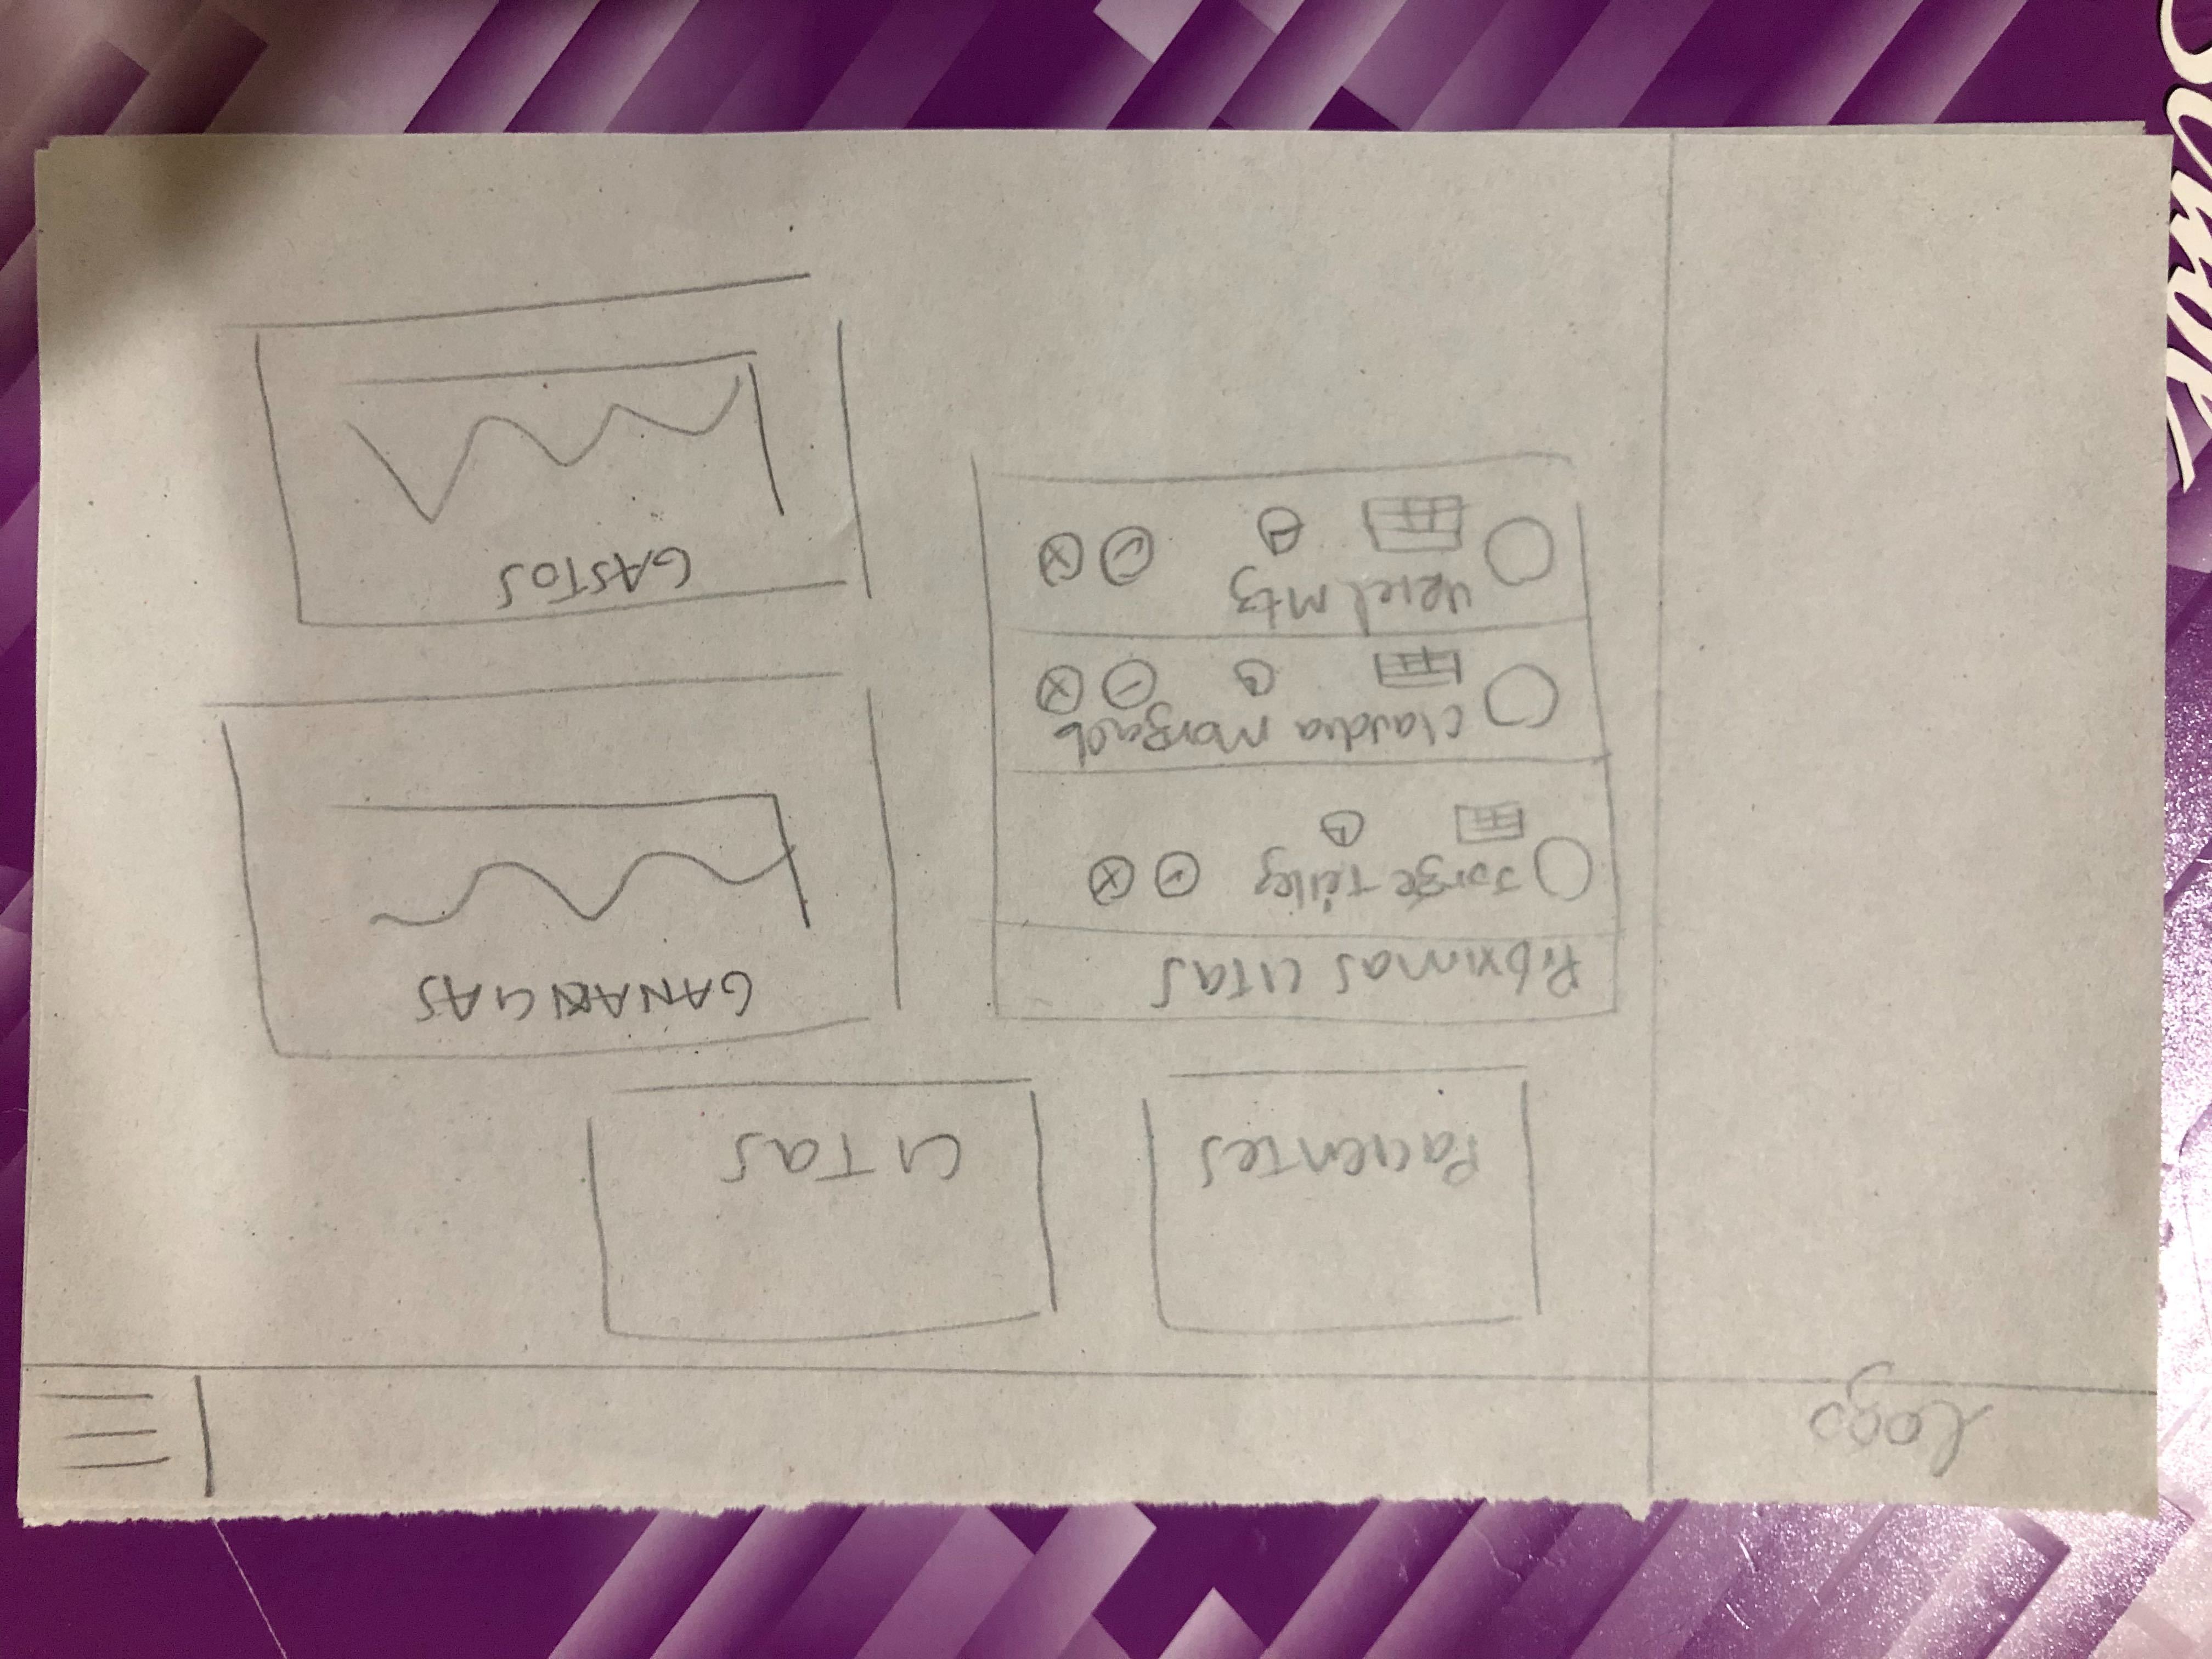 logo
Pacientes
CITas
Próximas CITas
Jorge Téllez
Claudia Morgado
URIel Mtz
GANANCIAS
GASTOS